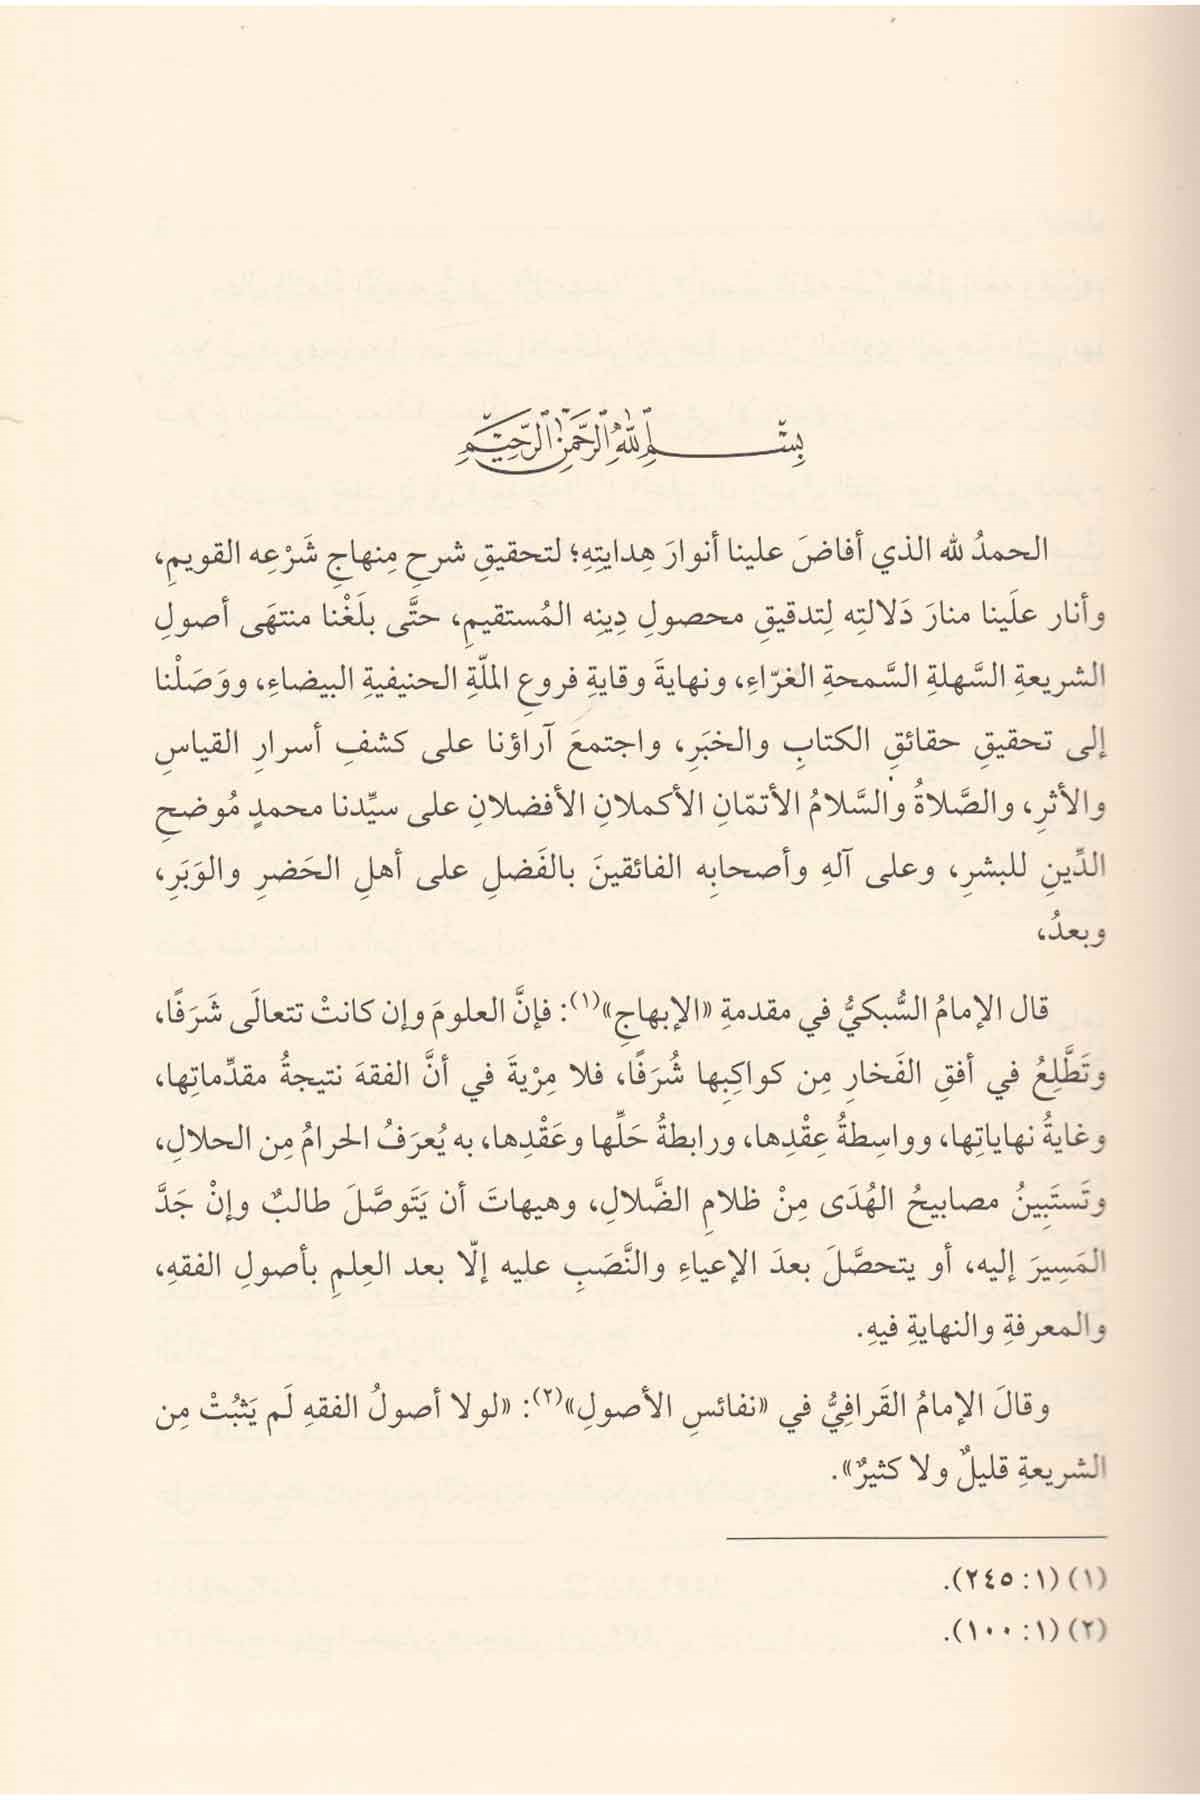 بسم الله الرحمن الرحيم
الحمدُ لله الذي أفاضَ علينا أنوارَ هِدايتِهِ؛ لتحقيقِ شرحِ مِنهاجِ شَرْعِه القويمِ،
وأنار علَينا منارَ دَلالتِه لِتدقيقِ محصولِ دِينِه المُستقيمِ، حتَّى بلَغْنا منتهَى أصولِ
الشريعةِ السَّهلةِ السَّمحةِ الغرّاءِ، ونهايةَ وقايةِ فروعِ الملّةِ الحنيفيةِ البيضاءِ، ووَصَلْنا
إلى تحقيقِ حقائقِ الكتابِ والخبَرِ، واجتمعَ آراؤنا على كشفِ أسرارِ القياسِ
والأثرِ، والصَّلاةُ والسَّلامُ الأتمّانِ الأكملانِ الأفضلانِ على سيِّدنا محمدٍ مُوضحِ
الدِّينِ للبشرِ، وعلى آلهِ وأصحابِه الفائقينَ بالفَضلِ على أهلِ الحَضرِ والوَبَرِ،
وبعدُ،
قال الإمامُ السُّبكيُّ في مقدمةِ «الإبهاجِ»(١): فإنَّ العلومَ وإن كانتْ تتعالَى شَرَفًا،
وتَطَّلِعُ في أفقِ الفَخارِ مِن كواكِبِها شُرَفًا، فلا مِرْيةَ في أنَّ الفقهَ نتيجةُ مقدِّماتِها،
وغايةُ نهاياتِها، وواسِطةُ عِقْدِها، ورابطةُ حَلِّها وعَقْدِها، به يُعرَفُ الحرامُ مِن الحلالِ،
وتَستَبِينُ مصابيحُ الهُدَى مِنْ ظلامِ الضَّلالِ، وهيهاتَ أن يَتَوصَّلَ طالبٌ وإنْ جَدَّ
المَسِيرَ إليه، أو يتحصَّلَ بعدَ الإعياءِ والنَّصَبِ عليه إلّا بعد العِلمِ بأصولِ الفقهِ،
والمعرفةِ والنهايةِ فيهِ.
وقالَ الإمامُ القَرافِيُّ في «نفائسِ الأصولِ»(٢): «لولا أصولُ الفقهِ لَم يَثبُتْ مِن
الشريعةِ قليلٌ ولا كثيرٌ».
(١) (١: ٢٤٥).
(٢) (١: ١٠٠).